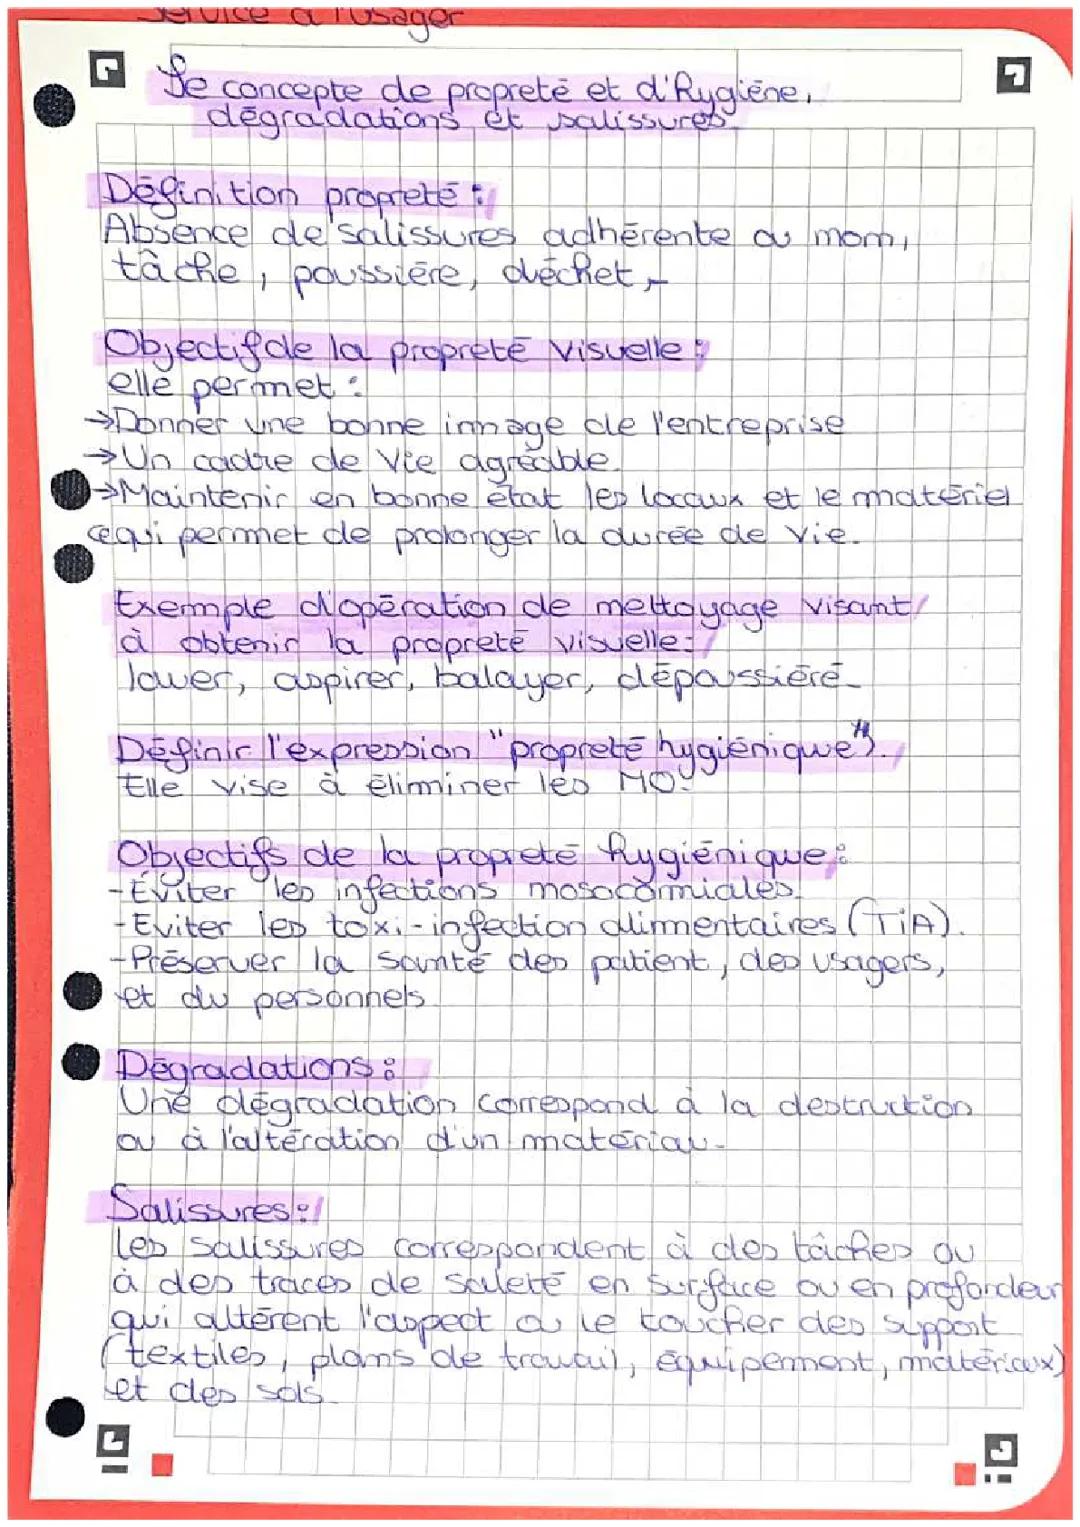 Service à l'usager
Le concepte de propreté et d'hygiène,
dégradations et salissures
Définition propreté :
Absence de salissures adhérente ou mom,
tâche, poussière, déchet,
Objectif de la propreté visuelle :
elle permet :
→Donner une bonne innage de l'entreprise
→Un cadre de vie agréable.
→Maintenir en bonne état les locaux et le matériel
ce qui permmet de prolonger la durée de vie.
Exemple d'opération de mettoyage visant
à obtenir la propreté visuelle:
laver, aspirer, balayer, dépoussiéré
Définir l'expression "propreté hygiénique".
Elle vise à éliminer les MO.
Objectifs de la propreté hygiénique :
-Éviter les infections mosocomiales.
-Eviter les toxi-infection alimentaires (TiA).
-Préserver la santé des patient, des usagers,
et du personnels.
Dégradations :
Une dégradation correspond à la destruction
ou à l'altération d'un matériau.
Salissures :
Les salissures correspondent à des tâches ou
à des traces de saleté en surface ou en profondeur
qui altèrent l'aspect ou le toucher des support
(textiles, plans de travail, équipement, matériaux)
et des sols.